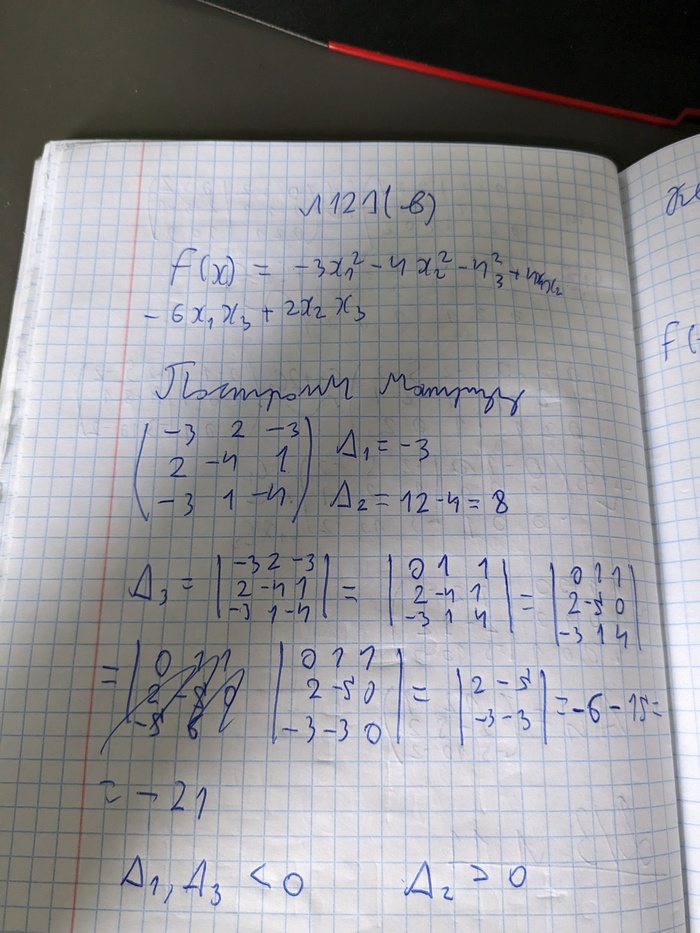 №1211(в)
f(x) = -3x₁² - 4x₂² - 4₃² + 4x₁x₂
- 6x₁x₃ + 2x₂x₃
Построим матрицу
(-3 2 -3) Δ₁ = -3
(2 -4 1)
(-3 1 -4) Δ₂ = 12-4 = 8
Δ₃ = |-3 2 -3; 2 -4 1; -3 1 -4| = |0 1 1; 2 -4 1; -3 1 4| = |0 1 1; 2 -5 0; -3 1 4|
= |0 1 1; 2 -5 0; -3 -3 0| = |2 -5; -3 -3| = -6 - 15 =
= -21
Δ₁, Δ₃ < 0 Δ₂ > 0